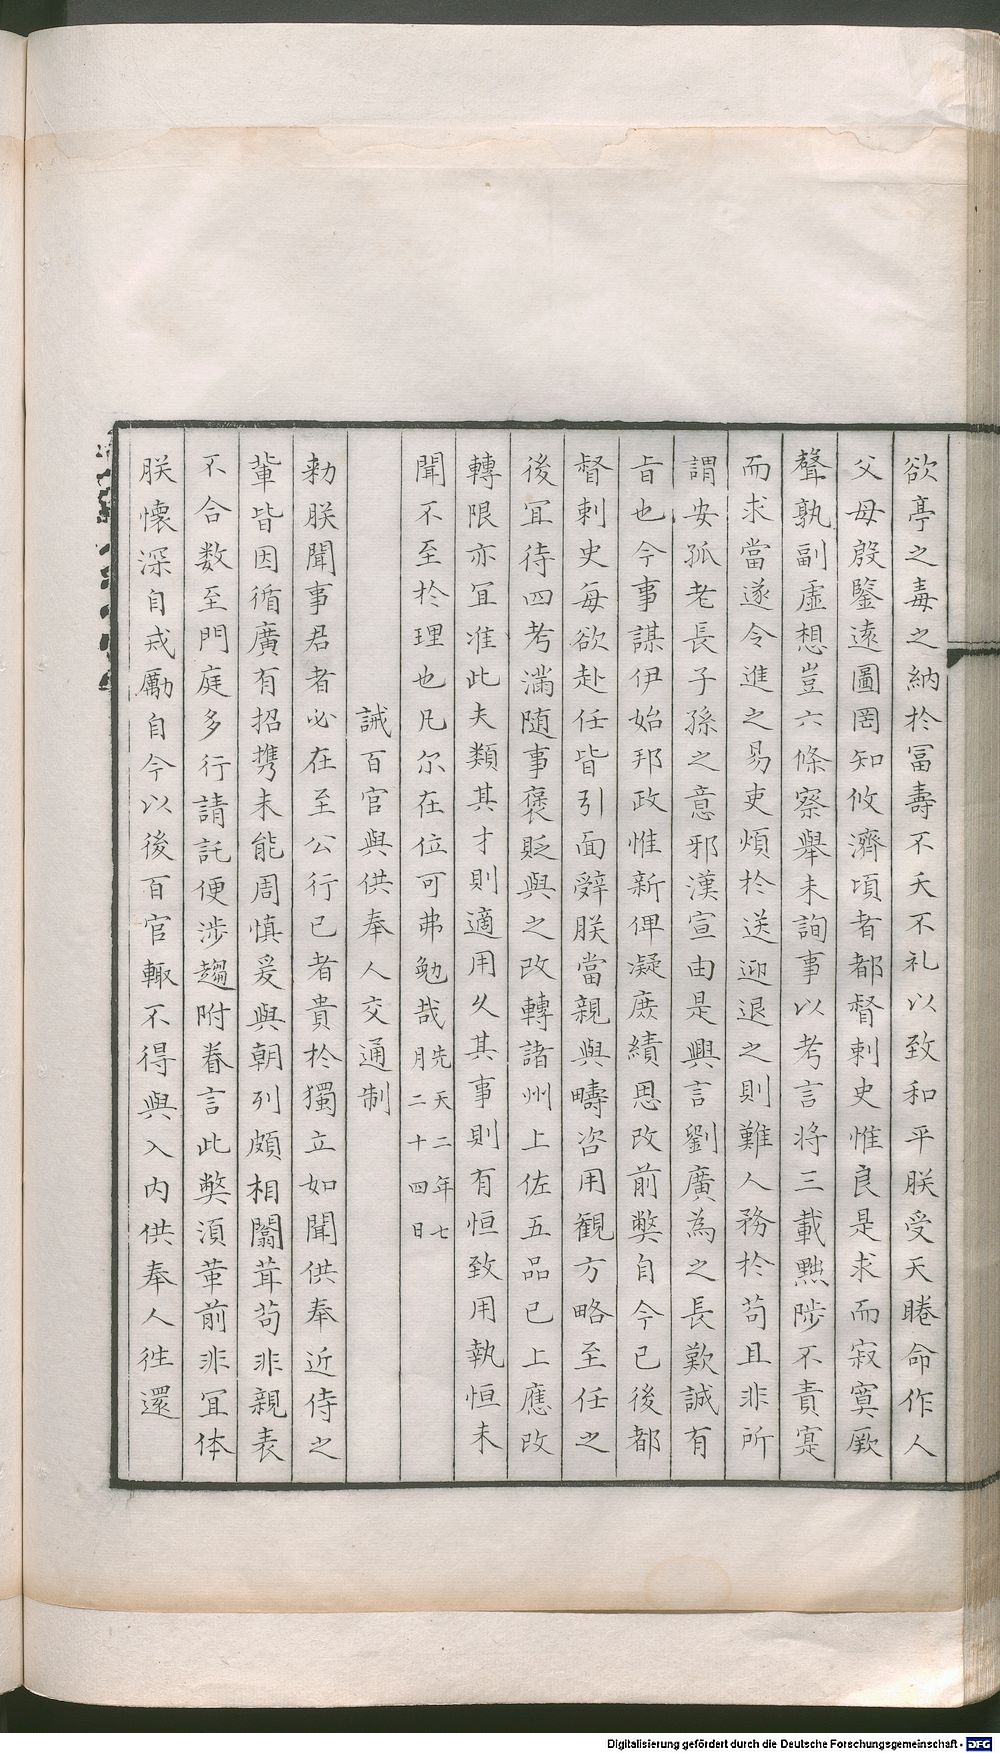 欲亭之毒之納於冨壽不夭不札以致和平朕受天睠命作人
父母殷鑒遠圖罔知攸濟頃者都督刺史惟良是求而寂寞厥
聲孰副虛想豈六條察舉未詢事以考言将三載黜陟不責寔
而求當遂令進之易吏煩於送迎退之則難人務於苟且非所
謂安孤老長子孫之意邪漢宣由是興言劉廣為之長歎誠有
旨也今事謀伊始邦政惟新俾凝庶績思改前弊自今已後都
督刺史每欲赴任皆引面辭朕當親與疇咨用観方略至任之
後冝待四考滿随事褒貶與之改轉諸州上佐五品已上應改
轉限亦冝准此夫類其才則適用久其事則有恒致用執恒未
聞不至於理也凡尔在位可弗勉哉先天二年七月二十四日
誡百官與供奉人交通制
勑朕聞事君者必在至公行已者貴於獨立如聞供奉近侍之
輩皆因循廣有招携未能周慎爰與朝列頗相闒茸苟非親表
不合数至門庭多行請託便涉趨附眷言此弊湏革前非冝体
朕懷深自戒勵自今以後百官輙不得與入内供奉人徃還
Digitalisierung gefördert durch die Deutsche Forschungsgemeinschaft - DFG